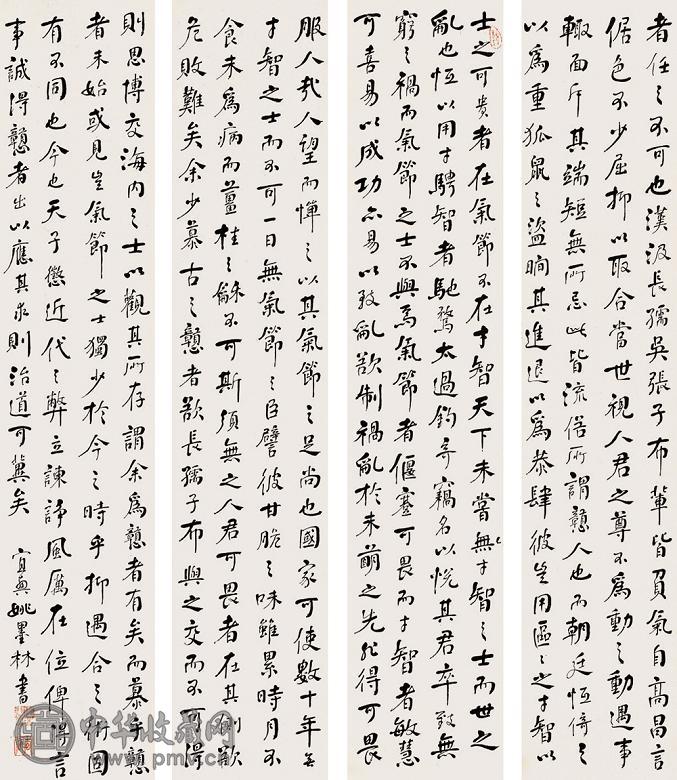 者任之不可也漢汲長孺吳張子布輩皆負氣自高昌言
倨色不少屈抑以取合當世視人君之尊不為動之動遇事
輒面斥其端短無所忌此皆流俗所謂戇人也而朝廷恒倚之
以為重狐鼠之盜瞯其進退以為恭肆彼豈用區區之才智以
士之可貴者在氣節不在才智天下未嘗無才智之士而世之
亂也恆以用才騁智者馳騖太過釣奇竊名以悅其君卒致無
窮之禍而氣節之士不與焉氣節者偃蹇可畏而才智者敏慧
可喜易以成功亦易以致亂欲制禍亂於未萌之先非得可畏
服人哉人望而憚之以其氣節之足尚也國家可使數十年無
才智之士而不可一日無氣節之臣譬彼甘脆之味雖累時月不
食未為病而薑桂之龢不可斯須無之人君可畏者在其側欲
危敗難矣余少慕古之戇者欲長孺子布與之交而不可得
則思博交海內之士以觀其所存謂余為戇者有矣而慕乎戇
者未始或見豈氣節之士獨少於今之時乎抑遇合之術國
有不同也今也天子懲近代之弊立諫諍風厲在位俾得言
事誠得戇者出以應其求則治道可冀矣 宜興姚墨林書
中华收藏网
pmv.cn.com